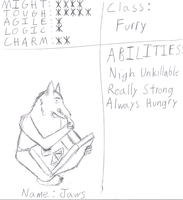 MIGHT: XXXX
TOUGH: XXXX
AGILE: X
LOGIC: X
CHARM: XX
Class:
Furry
ABILITIES:
Nigh Unkillable
Really Strong
Always Hungry
Name: Jaws